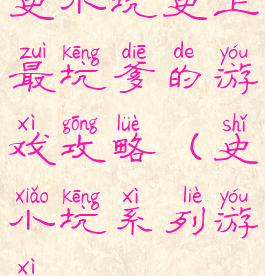 史小坑史上
zuì kēng diē de yóu
最坑爹的游
xì gōng lüè shǐ
戏攻略（史
xiǎo kēng xì liè yóu
小坑系列游
xì